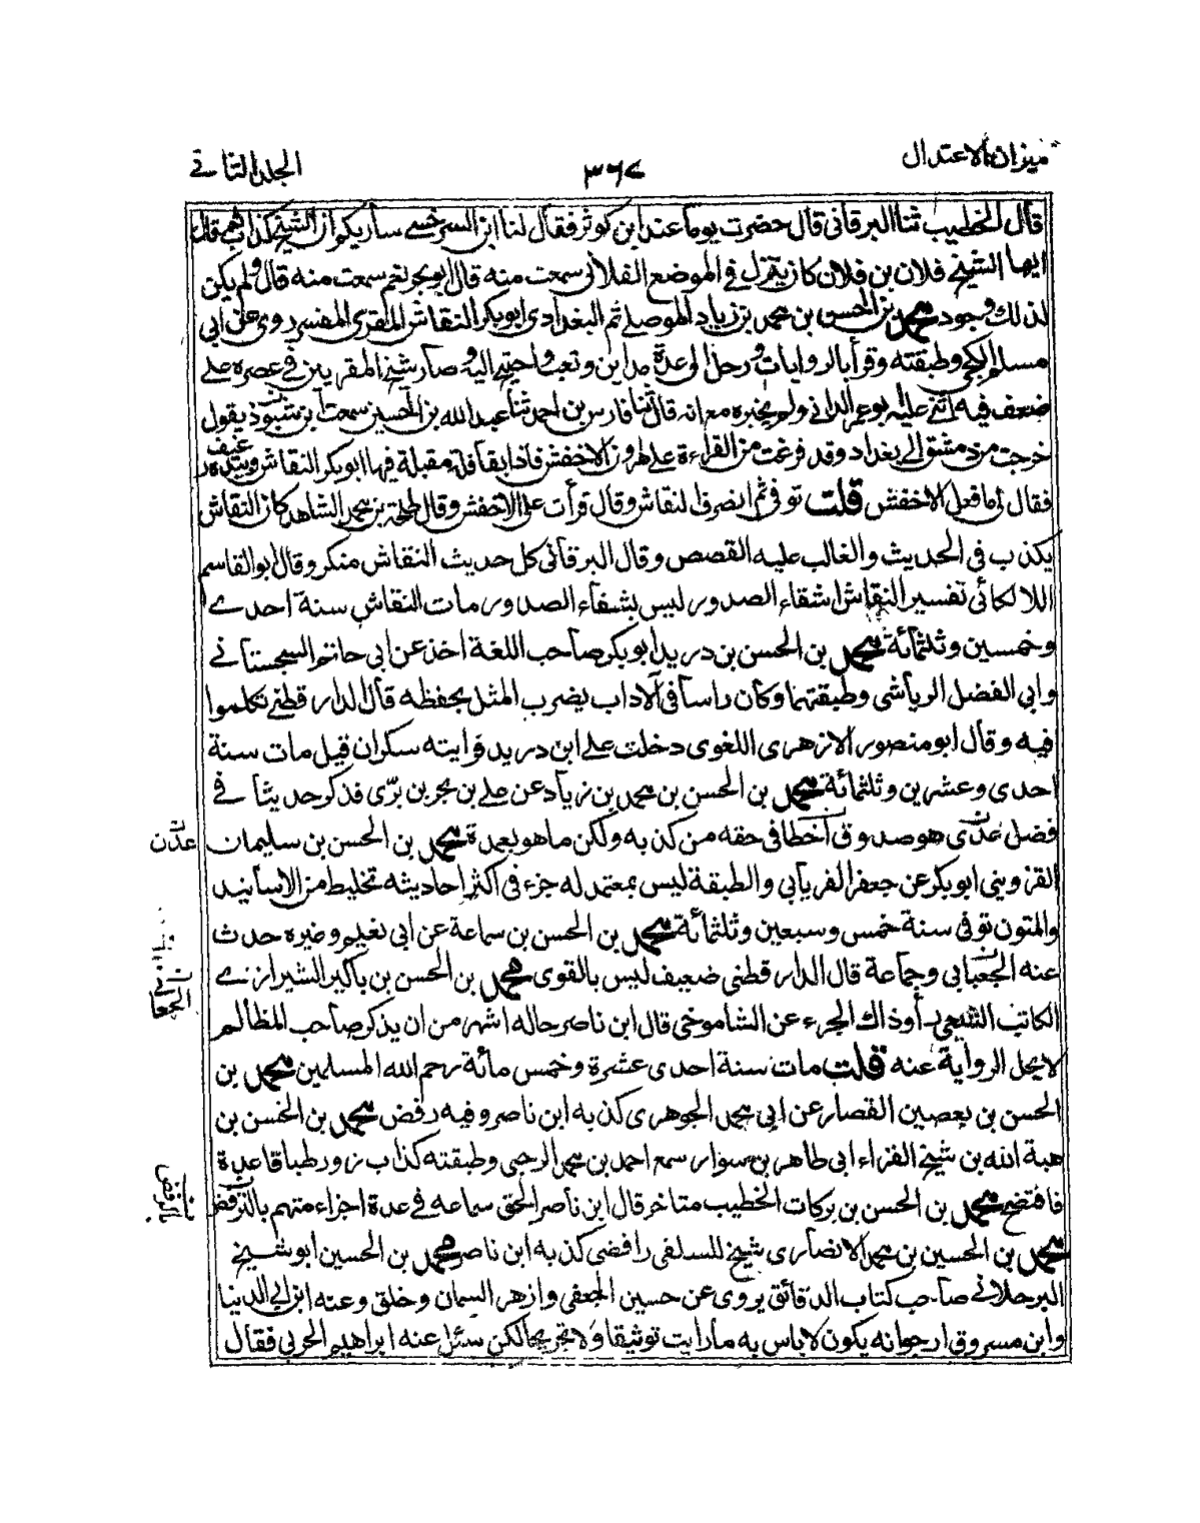 ميزان الاعتدال
٣٦٧
الجلد الثاني
قال الخطيب ثنا البرقاني قال حضرت يوما عند ابن كوثر فقال لنا ابن السرخسي ساريكم ان الشيخ كذاب ثم قال
ايها الشيخ فلان بن فلان كان ينزل في الموضع الفلاني سمعت منه قال ابو بحر نعم سمعت منه قال ولم يكن
لذلك وجود محمد بن الحسن بن محمد بن زياد الموصلي ثم البغدادي ابو بكر النقاش المقرئ المفسر روى عن ابي
مسلم الكجي وطبقته وقرأ بالروايات ورحل الى عدة مداين وتعب واحتيج اليه وصار شيخ المقريين في عصره على
ضعف فيه اثنى عليه ابو عمرو الداني ولم يخبره مع انه قال ثنا فارس بن احمد ثنا عبد الله بن الحسين سمعت ابن شنبوذ يقول
خرجت من دمشق الى بغداد وقد فرغت من القراءة على هارون الاخفش فاذا بقافلة مقبلة فيها ابو بكر النقاش وبيده رغيف
فقال لي ما فعل الاخفش قلت توفي ثم انصرف النقاش وقال قرأت على الاخفش وقال طلحة بن محمد الشاهد كان النقاش
يكذب في الحديث والغالب عليه القصص وقال البرقاني كل حديث النقاش منكر وقال ابو القاسم
اللالكائي تفسير النقاش اشقاء الصدور ليس بشفاء الصدور مات النقاش سنة احدے
وخمسين وثلثمائة محمد بن الحسن بن دريد ابو بكر صاحب اللغة اخذ عن ابي حاتم السجستاني
وابي الفضل الرياشي وطبقتهما وكان راسا في الاداب يضرب المثل بحفظه قال الدارقطني تكلموا
فيه وقال ابو منصور الازهري اللغوي دخلت على ابن دريد فرايته سكران قيل مات سنة
احدى وعشرين وثلثمائة محمد بن الحسن بن محمد بن زياد عن علي بن بحر بن برّي فذكر حديثا في
فضل عدن هو صدوق اخطا في حقه من كذبه ولكن ما هو بعمدة محمد بن الحسن بن سليمان
عدن
القزويني ابو بكر عن جعفر الفريابي والطبقة ليس بمعتمد له جزء في اكثر احاديثه تخليط من الاسانيد
والمتون توفي سنة خمس وسبعين وثلثمائة محمد بن الحسن بن سماعة عن ابي نعيم وغيره حدث
عنه الجعابي وجماعة قال الدارقطني ضعيف ليس بالقوى محمد بن الحسن بن باكير الشيرازے
الكاتب الشيعي او ذاك الجزء عن الشاموخي قال ابن ناصر حاله اشهر من ان يذكر صاحب المظالم
لا يحل الرواية عنه قلت مات سنة احدى عشرة وخمس مائة رحم الله المسلمين محمد بن
الحسن بن يعصين القصار عن ابي محمد الجوهري كذبه ابن ناصر وفيه رفض محمد بن الحسن بن
هبة الله بن شيخ القراء ابي طاهر بن سوار سمع احمد بن محمد الرحبي وطبقته كذاب زور طباقا عدة
فافتضح محمد بن الحسن بن بركات الخطيب متاخر قال ابن ناصر الحق سماعه في عدة اجزاء متهم بالترفض
بالرفض
محمد بن الحسين بن محمد الانصاري شيخ للسلفي رافضي كذبه ابن ناصر محمد بن الحسين ابو شيخ
البرجلاني صاحب كتاب الدقائق يروي عن حسين الجعفي وازهر السمان وخلق وعنه ابن ابي الدنيا
وابن مسروق ارجو انه يكون لا باس به ما رايت توثيقا ولا تجريحا لكن سئل عنه ابراهيم الحربي فقال